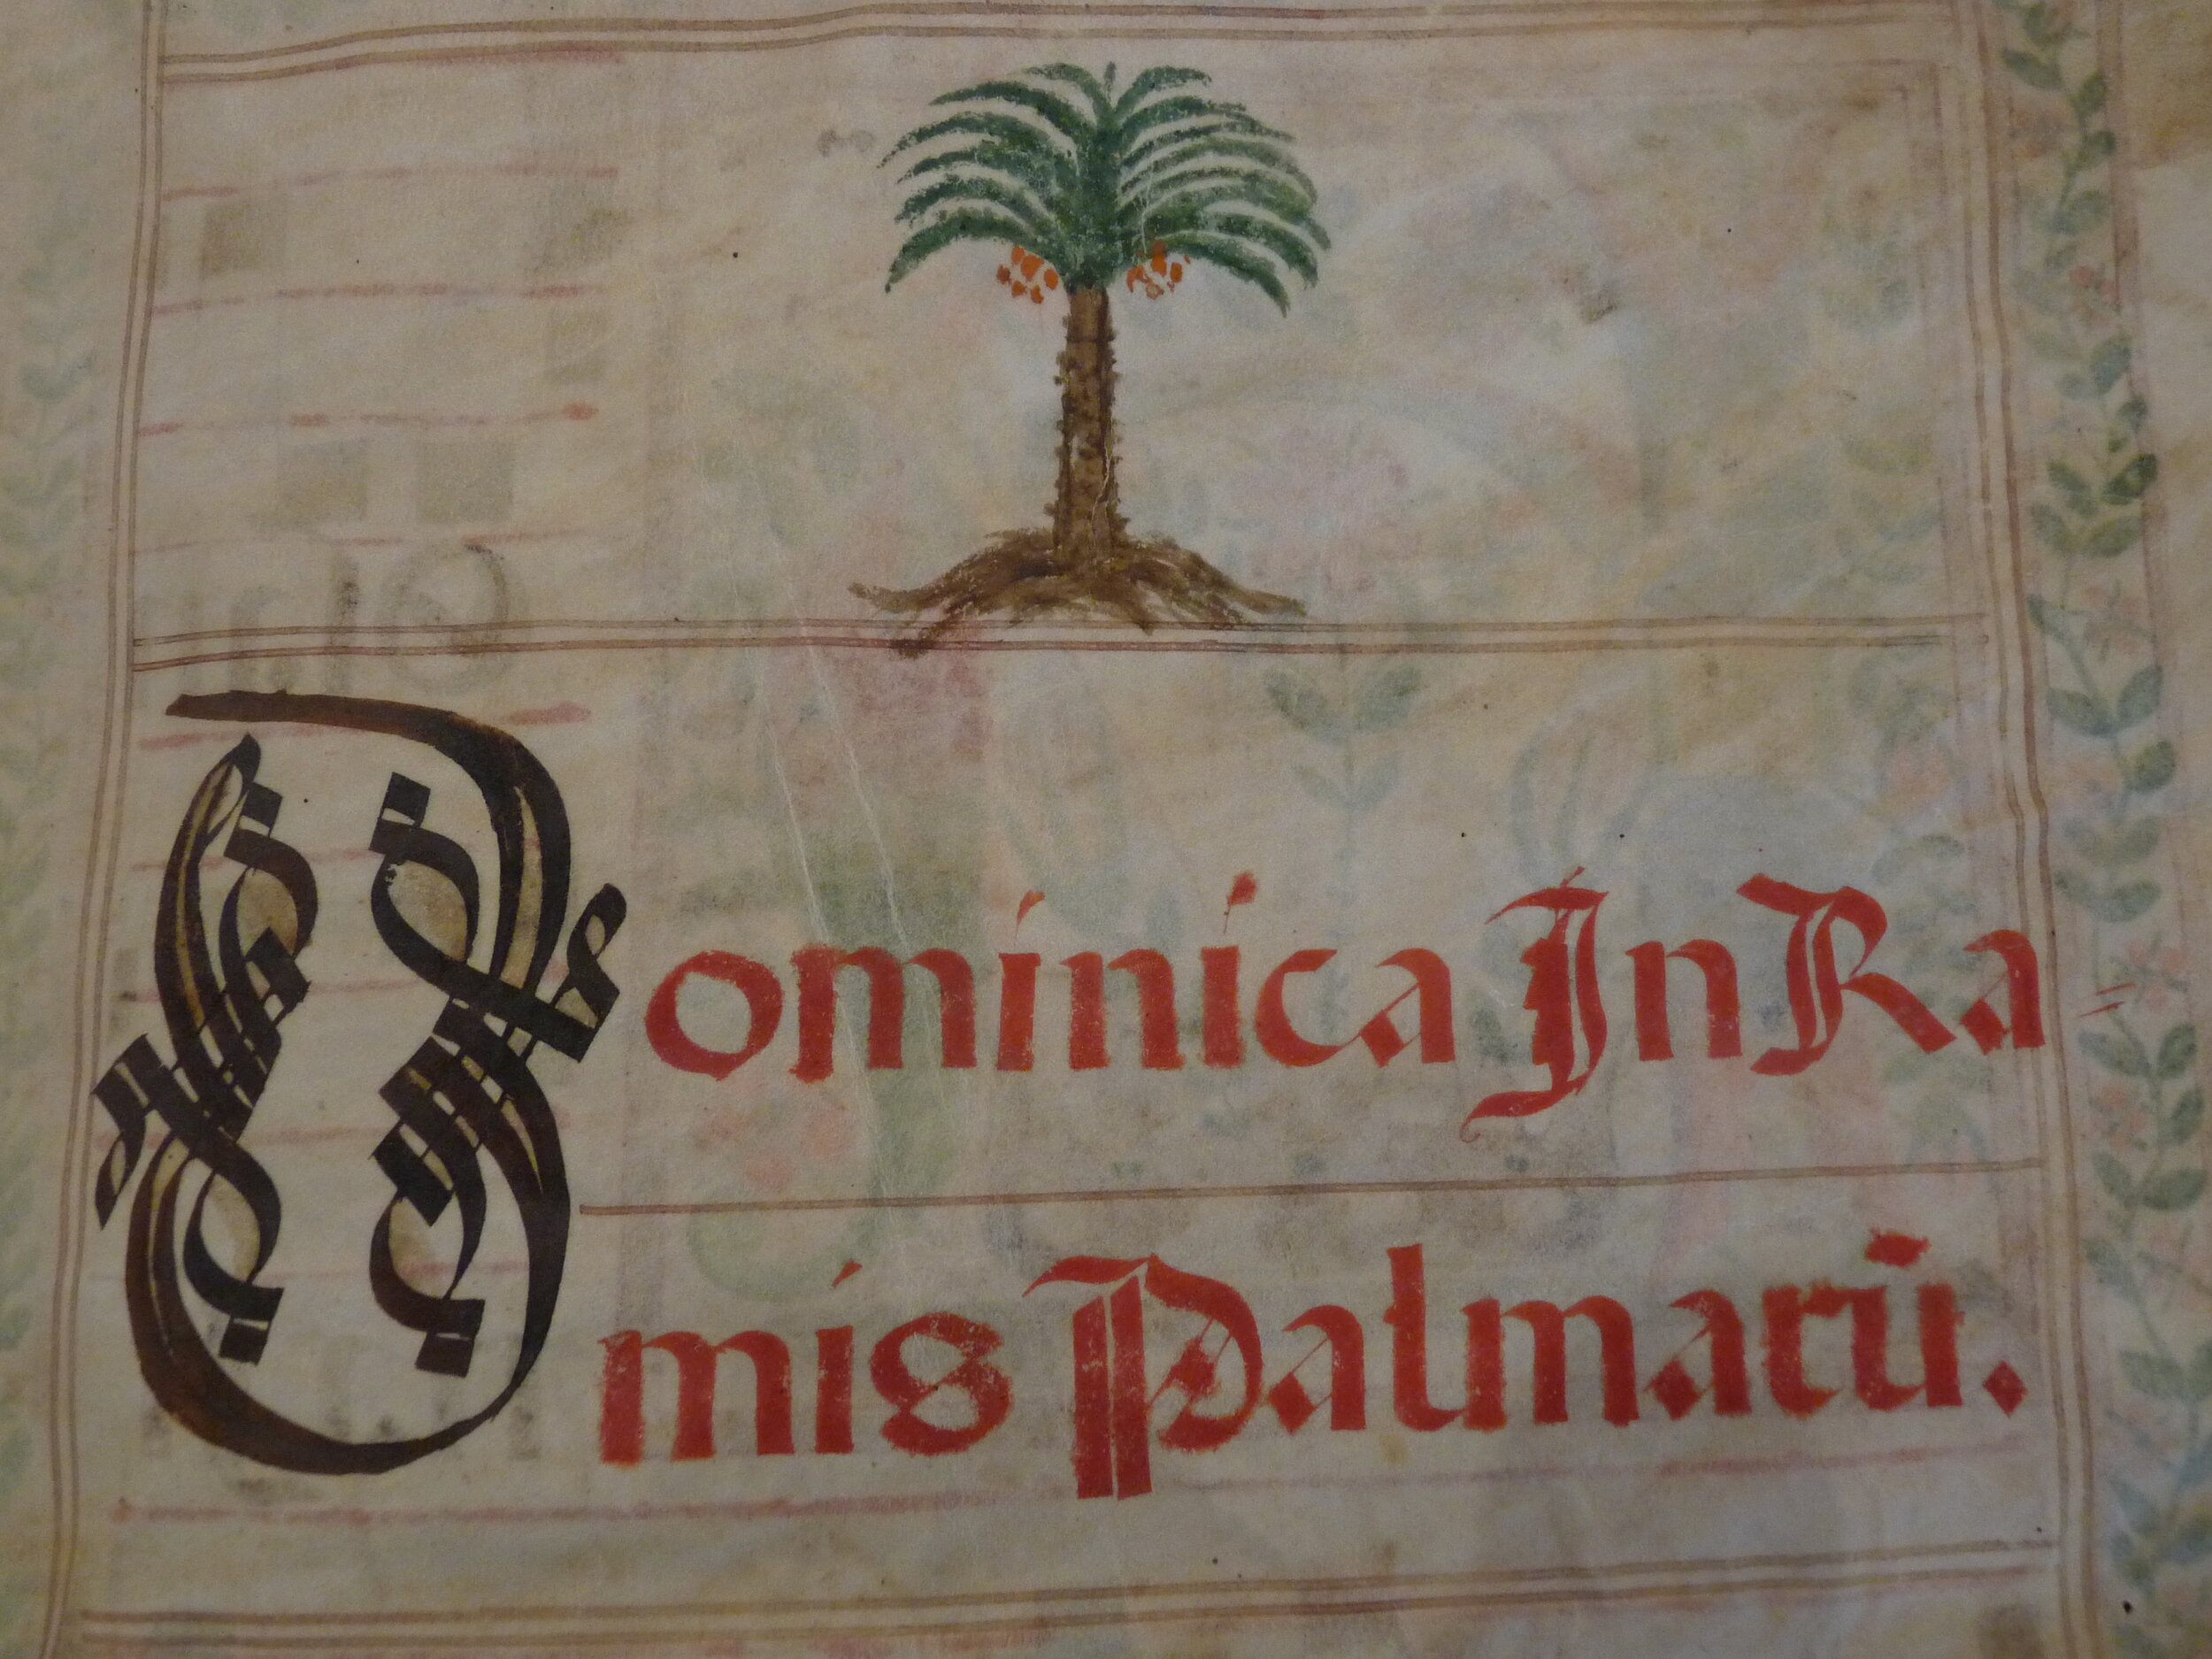 Dominica In Ra=
mis Palmarū.